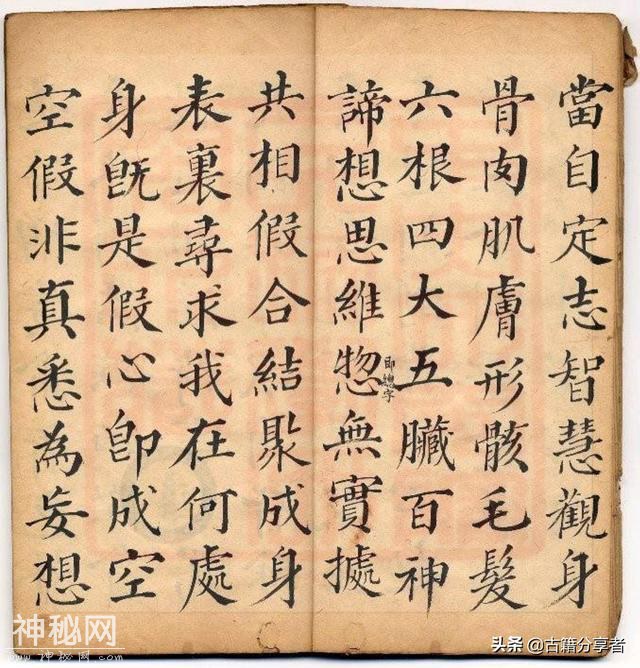 當自定志智慧觀身
骨肉肌膚形骸毛髮
六根四大五臟百神
諦想思維惣無實㨿
即總字
共相假合結聚成身
表裏尋求我在何處
身既是假心即成空
空假非真悉為妄想
神秘网
WWW.神秘网.COM
头条 @古籍分享者